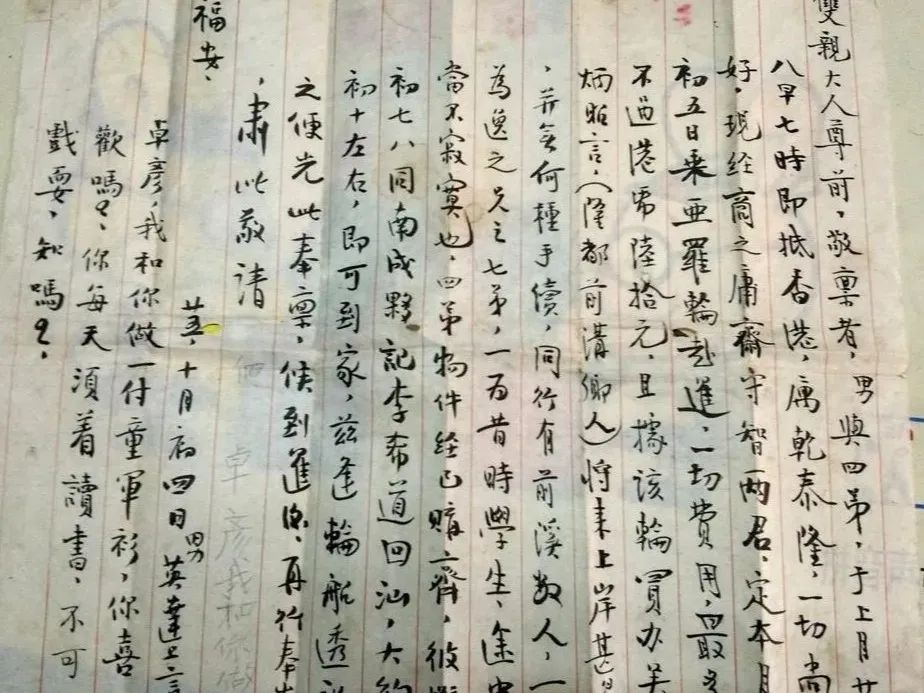 雙親大人尊前，敬禀者，男與四弟，于上月廿
八早七時即抵香港，寓乾泰隆，一切尚
好，現経商之庸齋守智兩君，定本月
初五日乘亜羅輪赴暹，一切費用，最多
不過港幣陸拾元，且據該輪買办吴
炳昭言，（隆都前溝鄉人）將来上岸甚
，并無何種手續，同行有前溪数人，一
為逸之兄之七弟，一為昔時學生，途中
當不寂寞也，四弟物件経已購齊，彼
初七八同南成夥記李希道回汕，大約
初十左右，即可到家，兹逢輪船透
之便先此奉禀，候到暹後，再行奉
，肅此敬請
福安，
十月初四日 男英達上言
卓彥，我和你做一付童軍衫，你喜
歡嗎？你每天須着讀書，不可
戲耍，知嗎？